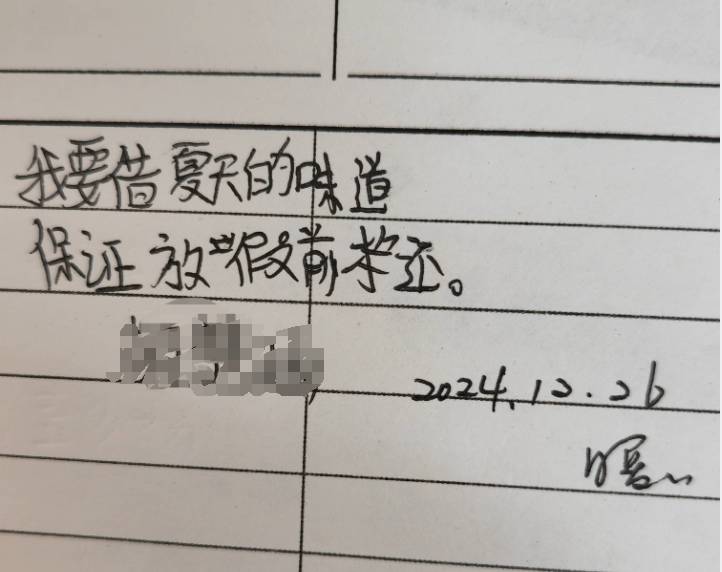 我要借夏天的味道
保证放假前来还。
2024.12.26